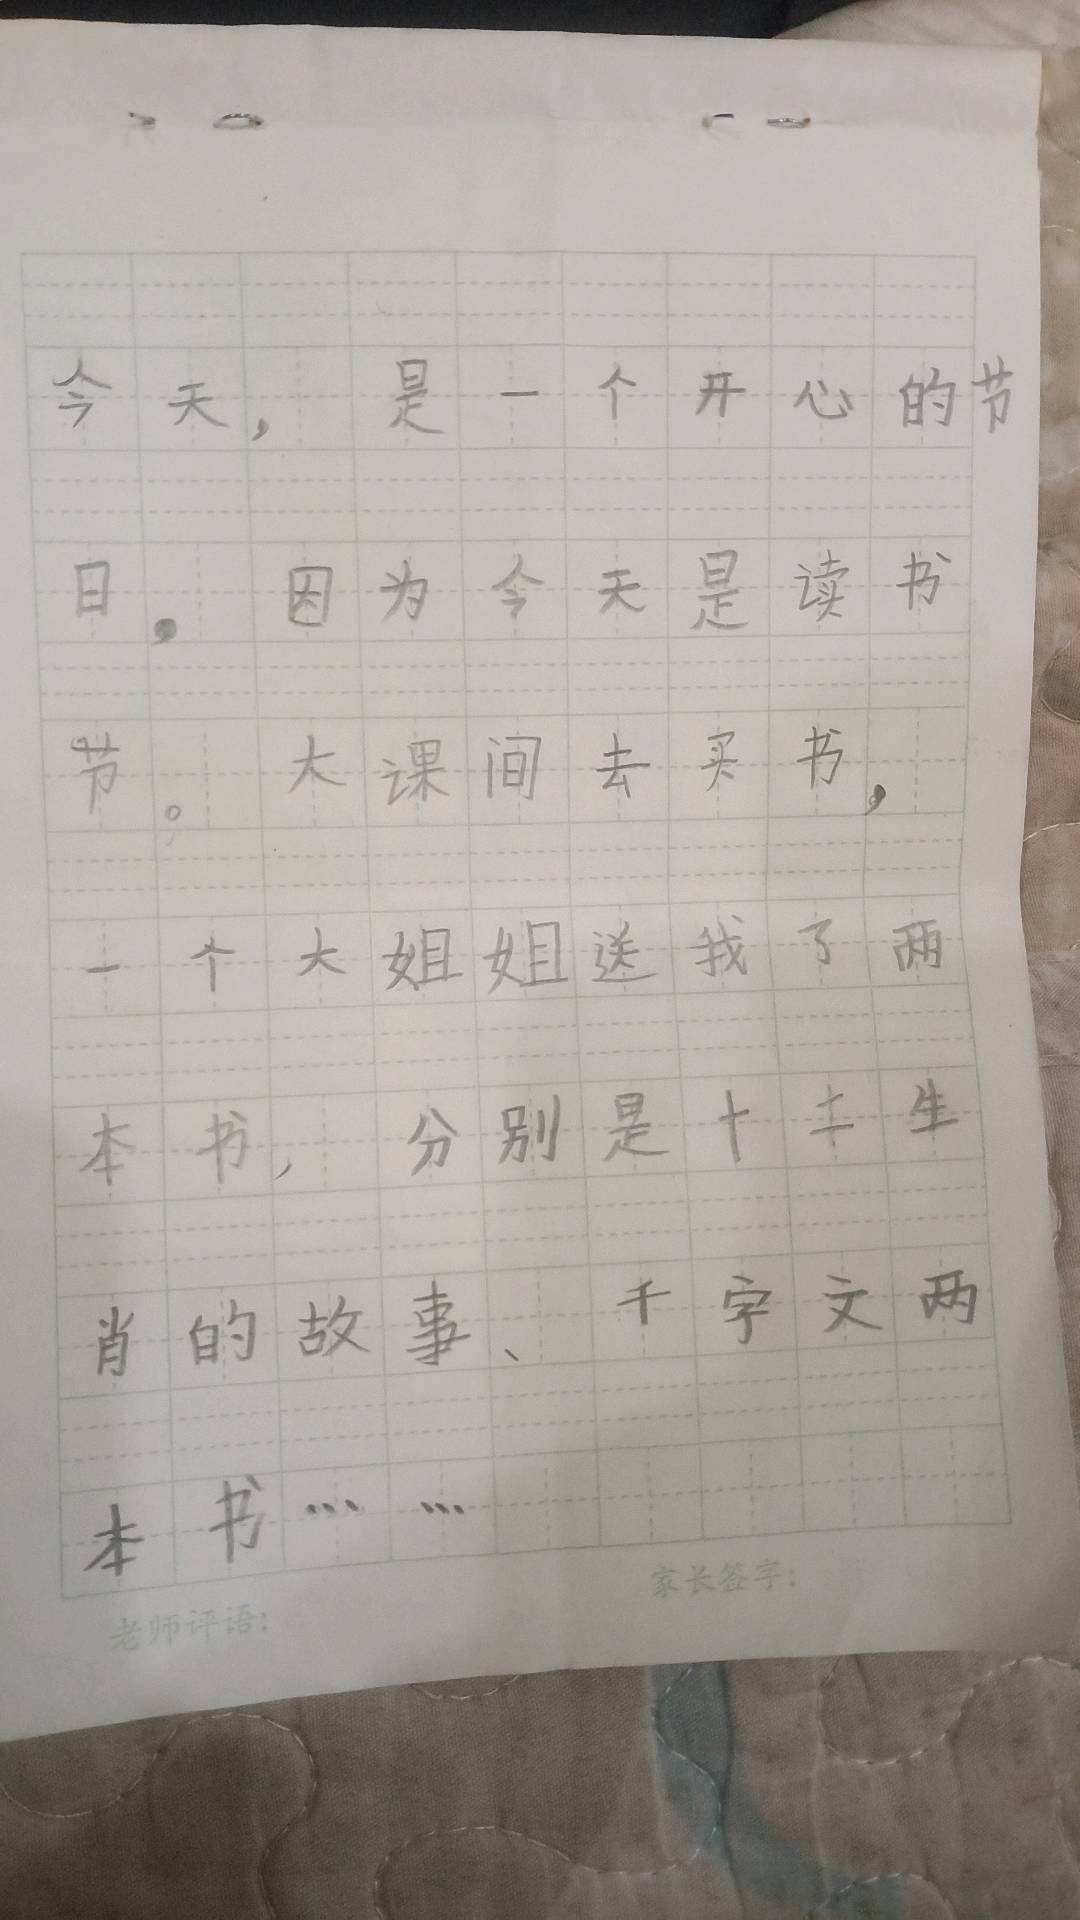 今天，是一个开心的节
日，因为今天是读书
节。大课间去买书，
一个大姐姐送我了两
本书，分别是十二生
肖的故事、千字文两
本书……
家长签字：
老师评语：